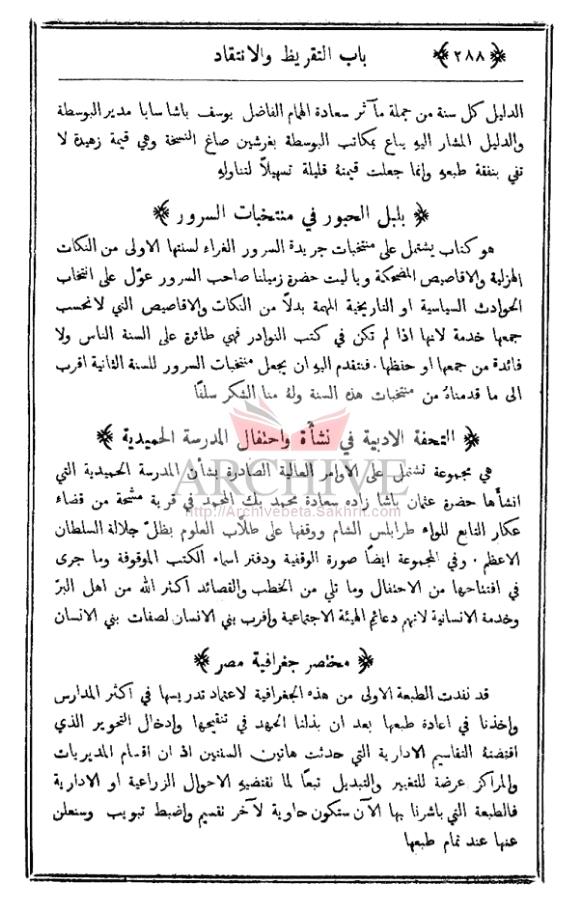 ﴿٢٨٨﴾ باب التقريظ والانتقاد
الدليل كل سنة من جملة مآثر سعادة الهمام الفاضل يوسف باشا سابا مدير البوسطة
والدليل المشار اليه يباع بمكاتب البوسطة بغرشين صاغ النسخة وهي قيمة زهيدة لا
تفي بنفقة طبعهِ وانما جعلت قيمتهُ قليلة تسهيلاً لتناولهِ
﴿ بلبل الحبور في منتخبات السرور ﴾
هو كتاب يشتمل على منتخبات جريدة السرور الغراء لسنتها الاولى من النكات
الهزلية والاقاصيص المضحكة ويا ليت حضرة زميلنا صاحب السرور عوّل على انتخاب
الحوادث السياسية او التاريخية المهمة بدلاً من النكات والاقاصيص التي لا نحسب
جمعها خدمة لانها اذا لم تكن في كتب النوادر فهي طائرة على السنة الناس ولا
فائدة من جمعها او حفظها . فنتقدم اليهِ ان يجعل منتخبات السرور للسنة الثانية اقرب
الى ما قدمناهُ من منتخبات هذه السنة ولهُ منا الشكر سلفًا
﴿ التحفة الادبية في نشأة واحتفال المدرسة الحميدية ﴾
ARCHIVE
هي مجموعة تشتمل على الاوامر العالية الصادرة بشأن المدرسة الحميدية التي
انشأها حضرة عثمان باشا زاده سعادة محمد بك المحمد في قرية مشحة من قضاء
http://Archivebeta.Sakhrit.com
عكار التابع للواء طرابلس الشام ووقفها على طلاب العلوم بظلّ جلالة السلطان
الاعظم . وفي المجموعة ايضًا صورة الوقفية ودفتر اسماء الكتب الموقوفة وما جرى
في افتتاحها من الاحتفال وما تلي من الخطب والقصائد أكثر الله من اهل البرّ
وخدمة الانسانية لانهم دعائم الهيئة الاجتماعية واقرب بني الانسان لصفات بني الانسان
﴿ مختصر جغرافية مصر ﴾
قد نفدت الطبعة الاولى من هذه الجغرافية لاعتماد تدريسها في أكثر المدارس
واخذنا في اعادة طبعها بعد ان بذلنا الجهد في تنقيحها وإدخال التحوير الذي
اقتضتهُ التقاسيم الادارية التي حدثت هاتين السنتين اذ ان اقسام المديريات
والمراكز عرضة للتغيير والتبديل تبعًا لما تقتضيهِ الاحوال الزراعية او الادارية
فالطبعة التي باشرنا بها الآن ستكون حاوية لآخر تقسيم واضبط تبويب وسنعلن
عنها عند تمام طبعها